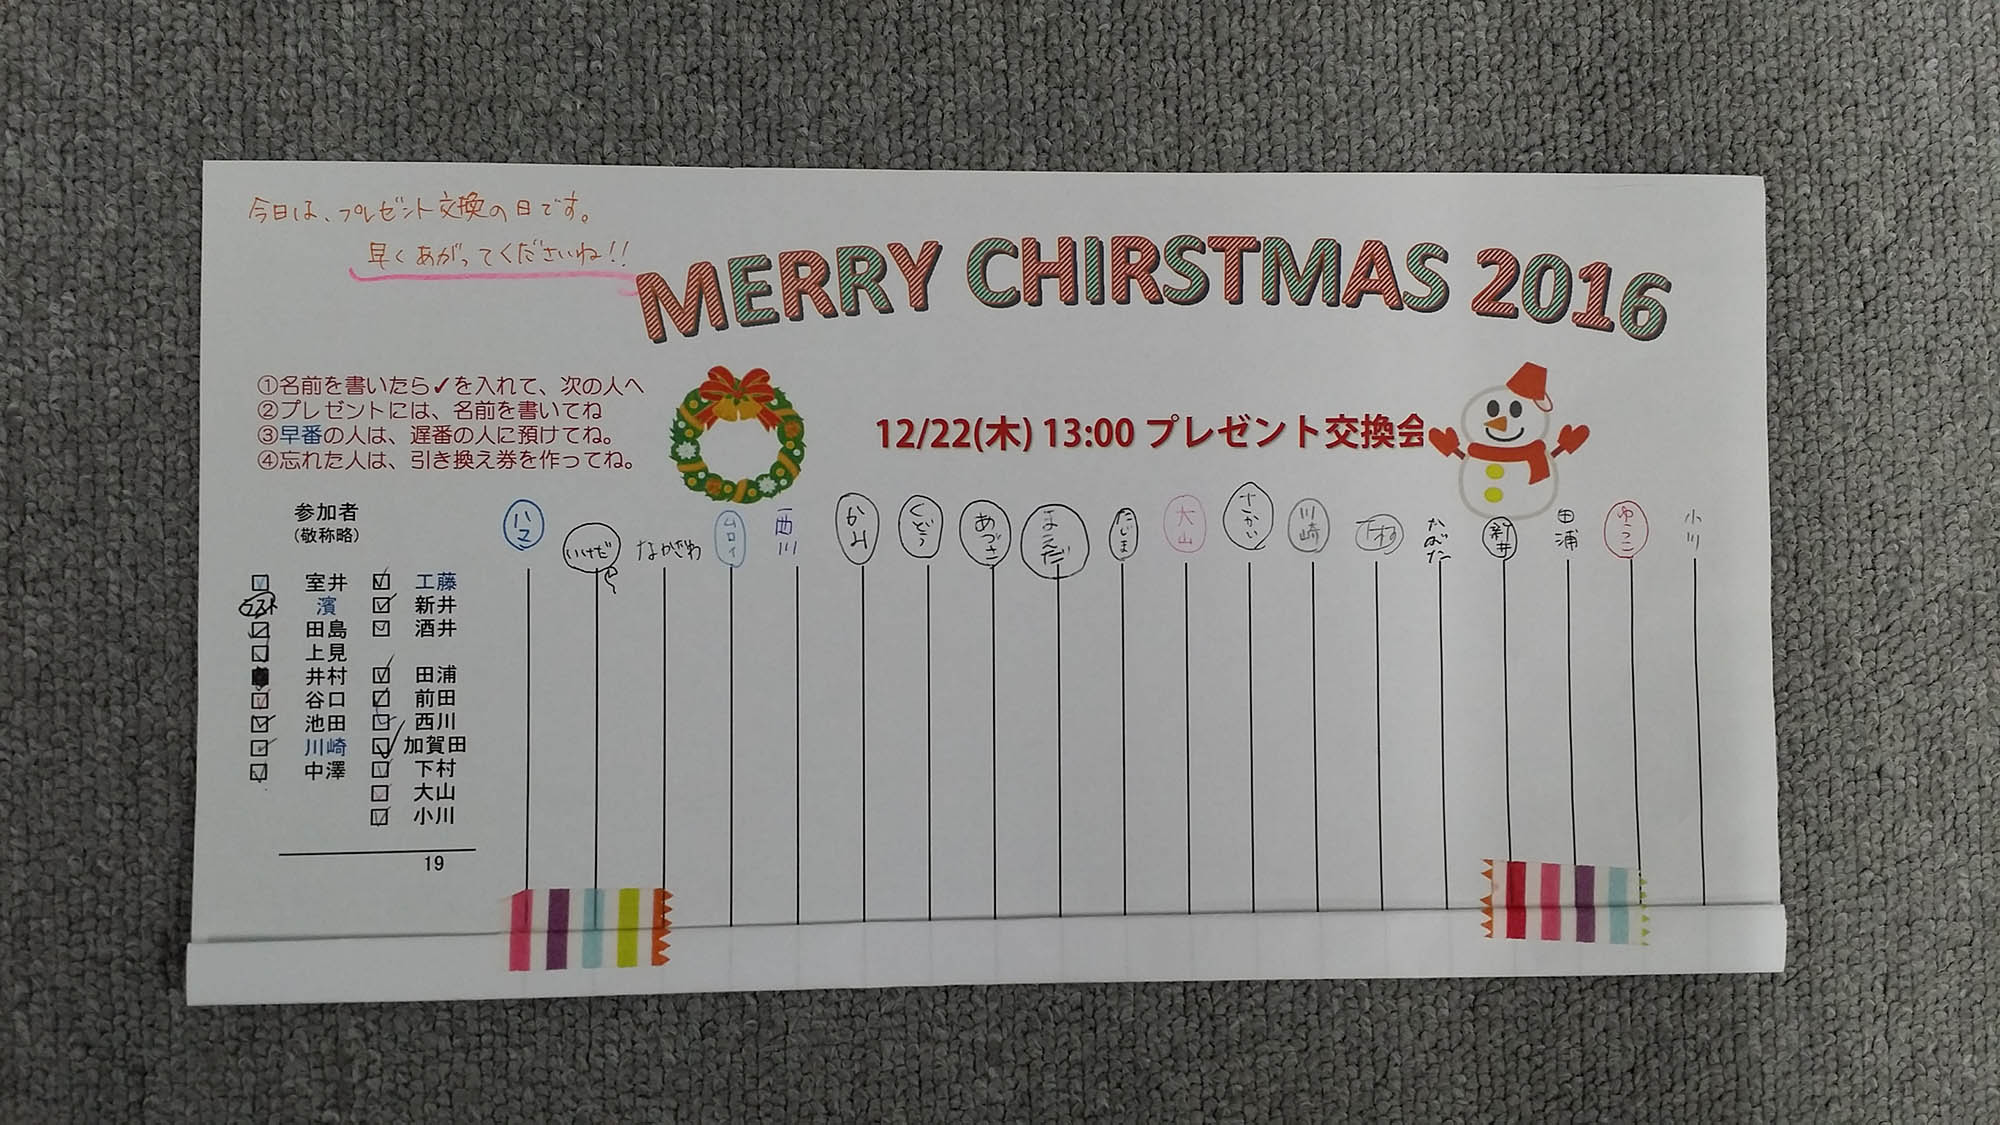 今日は、プレゼント交換の日です。
早くあがってくださいね!!
MERRY CHIRSTMAS 2016
①名前を書いたら✓を入れて、次の人へ
②プレゼントには、名前を書いてね
③早番の人は、遅番の人に預けてね。
④忘れた人は、引き換え券を作ってね。
12/22(木) 13:00 プレゼント交換会
参加者
(敬称略)
室井 工藤
ラスト 濱 新井
田島 酒井
上見
井村 田浦
谷口 前田
池田 西川
川崎 加賀田
中澤 下村
大山
小川
19
ハマ いけだ なかざわ ムロイ 西川 かみ くどう あづさ まえだ たじま 大山 さかい 川崎 下村 新井 田浦 ゆうこ 小川